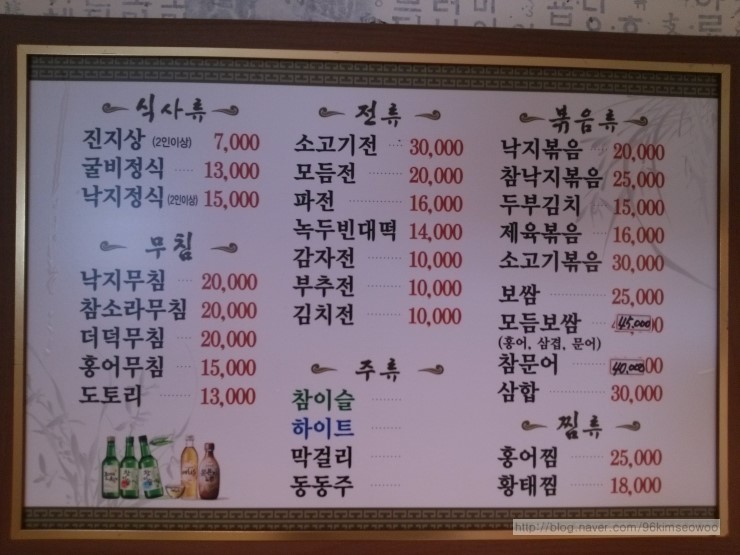 식사류
진지상 (2인이상) 7,000
굴비정식 13,000
낙지정식 (2인이상) 15,000
무침
낙지무침 20,000
참소라무침 20,000
더덕무침 20,000
홍어무침 15,000
도토리 13,000
전류
소고기전 30,000
모듬전 20,000
파전 16,000
녹두빈대떡 14,000
감자전 10,000
부추전 10,000
김치전 10,000
주류
참이슬
하이트
막걸리
동동주
볶음류
낙지볶음 20,000
참낙지볶음 25,000
두부김치 15,000
제육볶음 16,000
소고기볶음 30,000
보쌈 25,000
모듬보쌈 45,000
(홍어, 삼겹, 문어)
참문어 40,000
삼합 30,000
찜류
홍어찜 25,000
황태찜 18,000
http://blog.naver.com/96kimseowoo